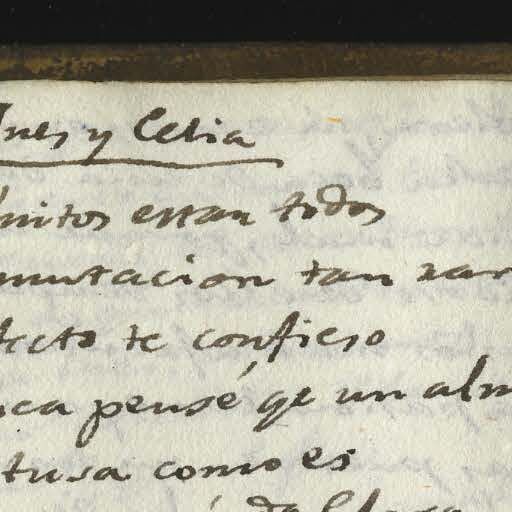 Ines y Celia
nitos estan todos
mutacion tan rar
fecto te confieso
ca pensé, qe un alm
tusa como es